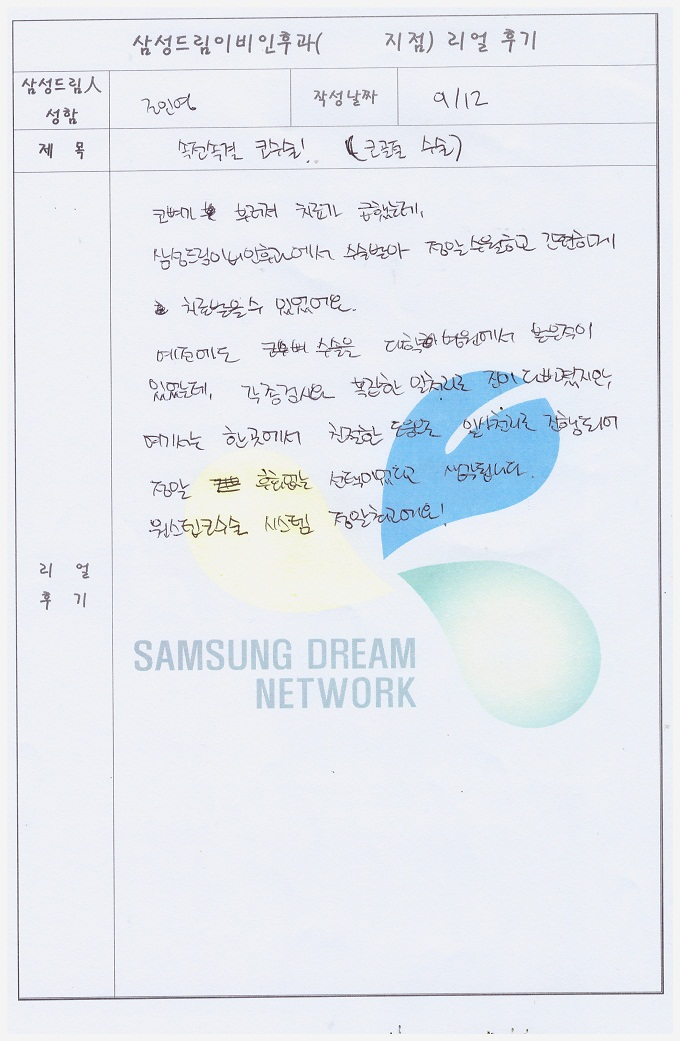 삼성드림이비인후과( 지점) 리얼 후기
삼성드림人
성함
조인영
작성날짜
9/12
제 목
속전속결 코수술! (코골절 수술)
코뼈가 부러져 치료가 급했는데,
삼성드림이비인후과에서 수술받아 정말 수월하고 간편하게
치료받을수 있었어요.
예전에도 수술을 대학병원에서 받은적이
있었는데, 각종검사와 복잡한 일처리로 진이 다빠졌지만,
여기서는 한곳에서 친절한 도움으로 일사천리로 진행되어
정말 후회없는 선택이었다고 생각됩니다.
원스텝코수술 시스템 정말최고에요!
리 얼
후 기
SAMSUNG DREAM
NETWORK